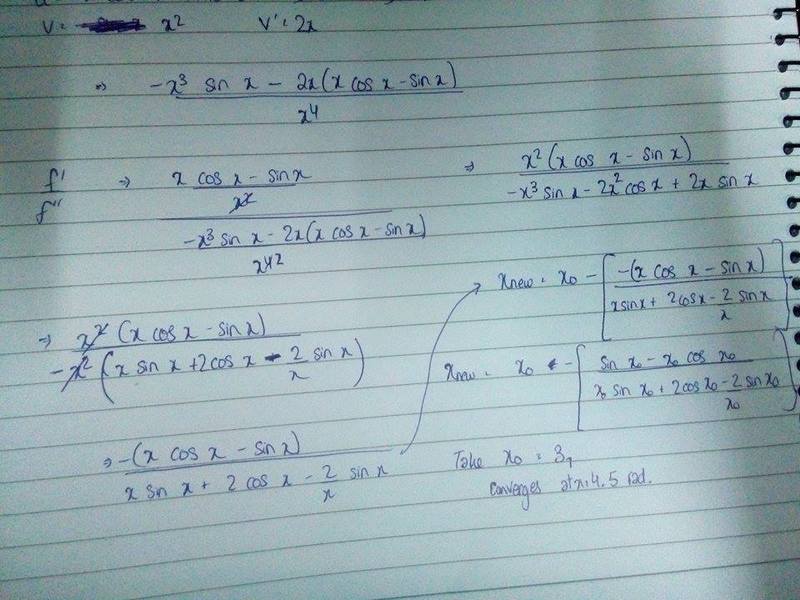 V = x² V' = 2x
⇒ -x³ sin x - 2x(x cos x - sin x) / x⁴
f' / f'' ⇒ x cos x - sin x / x² / -x³ sin x - 2x(x cos x - sin x) / x⁴ ² ⇒ x² (x cos x - sin x) / -x³ sin x - 2x² cos x + 2x sin x
⇒ x² (x cos x - sin x) / -x² (x sin x + 2 cos x - 2/x sin x)
⇒ -(x cos x - sin x) / x sin x + 2 cos x - 2/x sin x
xnew = x₀ - [-(x cos x - sin x) / x sin x + 2 cos x - 2/x sin x]
xnew = x₀ - [sin x₀ - x₀ cos x₀ / x₀ sin x₀ + 2 cos x₀ - 2 sin x₀ / x₀]
Take x₀ = 3,
converges at x = 4.5 rad.